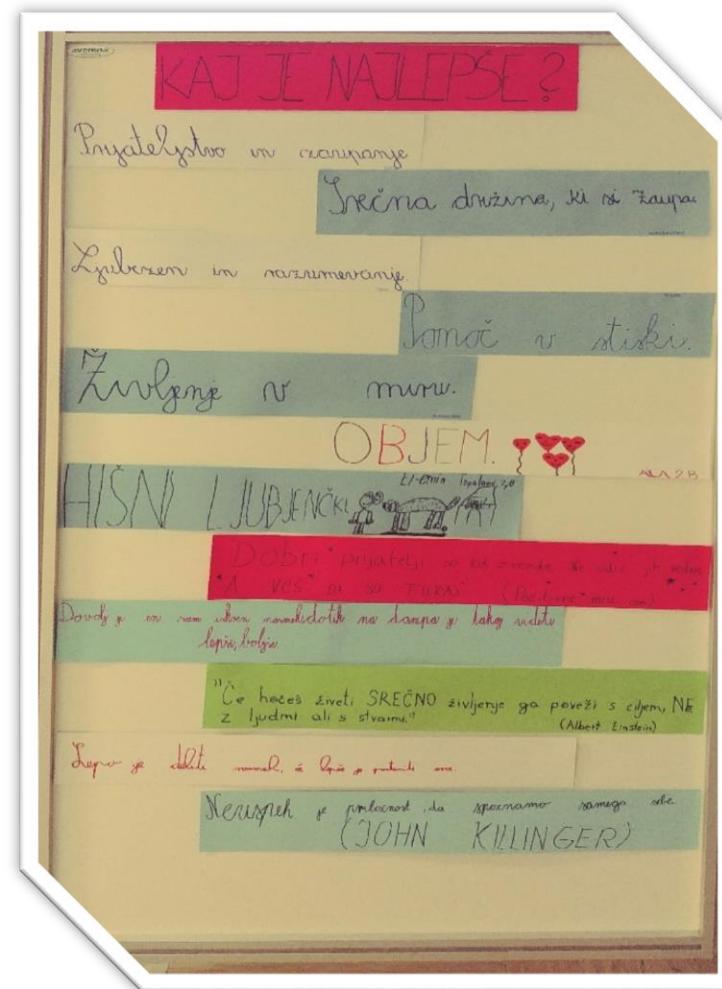 KAJ JE NAJLEPŠE?
Prijateljstvo in zaupanje
Srečna družina, ki si zaupa.
Ljubezen in razumevanje.
Pomoč v stiski.
Življenje v miru.
OBJEM.
HIŠNI LJUBJENČKI
Dobri prijatelji so kot zvezde. Ne vidiš jih vedno
A VEŠ da so TUKAJ
Dovolj je en sam nasmeh, dotik na
lepše, boljše.
"Če hočeš živeti SREČNO življenje ga poveži s ciljem, NE
Z ljudmi ali s stvarmi."
(Albert Einstein)
Lepo je deliti nasmeh,
Neuspeh je priložnost, da spoznamo samega sebe
(JOHN KILLINGER)